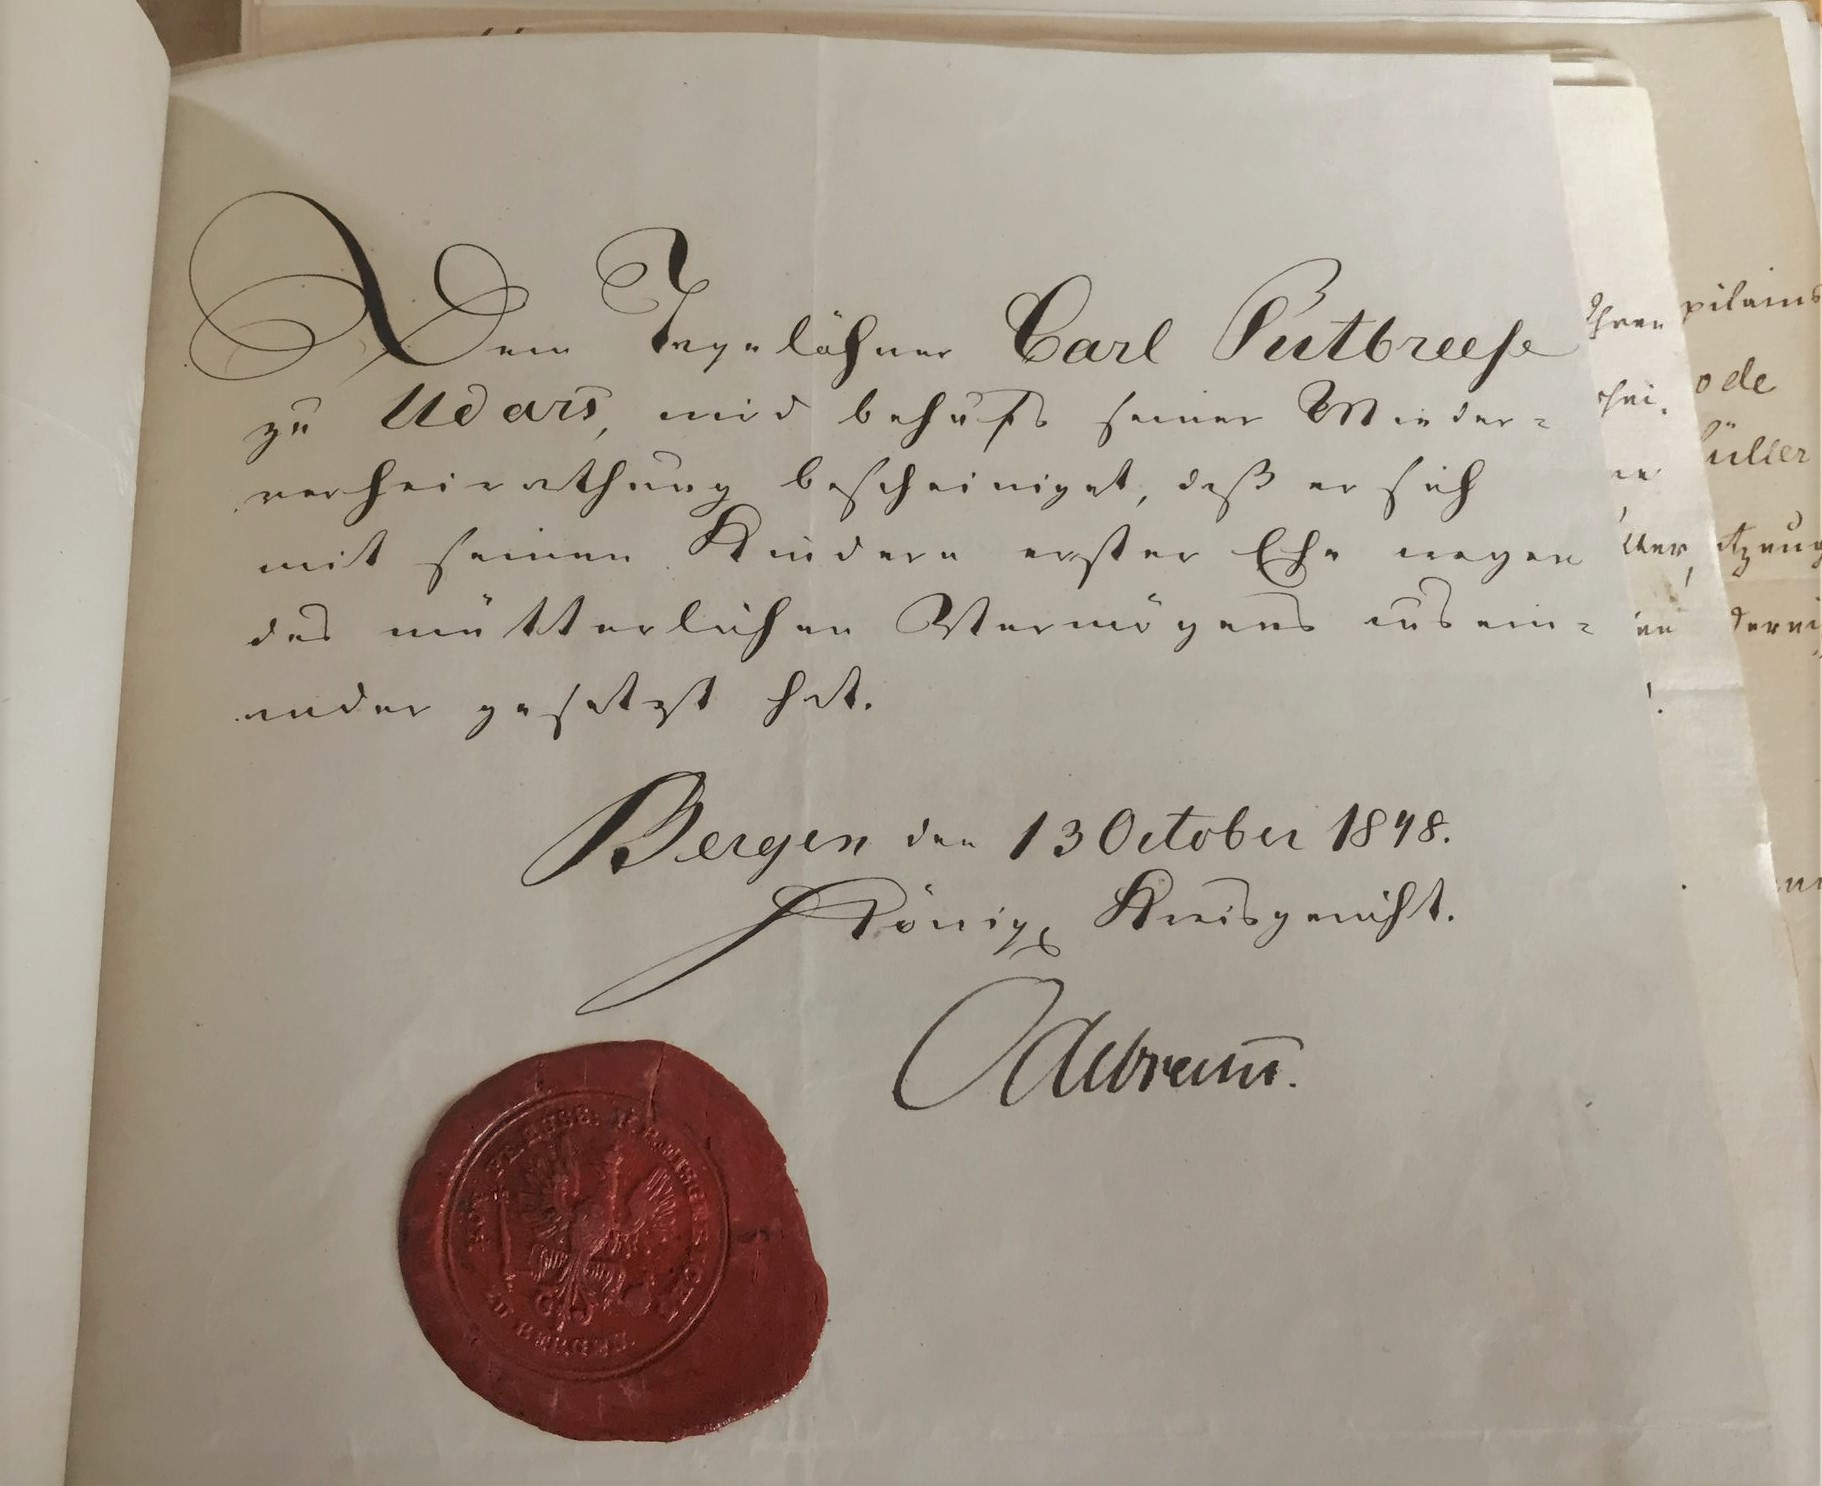 Dem Tagelöhner Carl Putbreese
zu Udars, wird behufs seiner Wieder=
verheirathung bescheiniget, daß er sich
mit seinen Kindern erster Ehe wegen
des mütterlichen Vermögens ausein=
ander gesetzt hat.
Bergen den 13 October 1848.
Königl Kreisgericht.
Odebrecht.
KÖN. PREUSS. KREISGERICHT
ZU BERGEN.
pilams
ode
üller